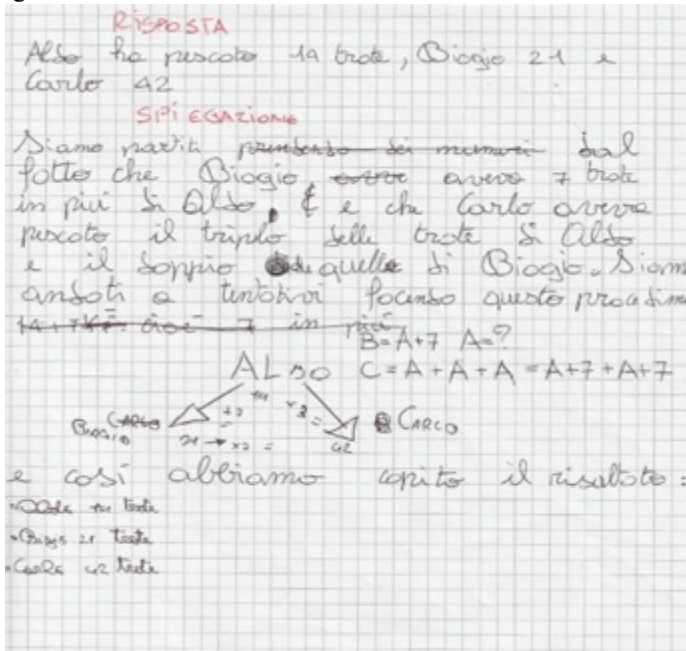 RISPOSTA
Aldo ha pescato 14 trote, Biagio 21 e
Carlo 42
SPIEGAZIONE
Siamo partiti prendendo dei numeri dal
fatto che Biagio, aveva 7 trote
in più di Aldo, e che Carlo aveva
pescato il triplo delle trote di Aldo
e il doppio de quelle di Biagio. Siam
andati a tentativi facendo questo procedime
14 + 7 cioè 7 in più
B=A+7 A=?
ALDO C=A+A+A=A+7+A+7
+7 14 x3
BIAGIO CARLO = = CARLO
21 → x2 = 42
e così abbiamo capito il risultato:
•Aldo 14 trote
•Biagio 21 trote
•Carlo 42 trote